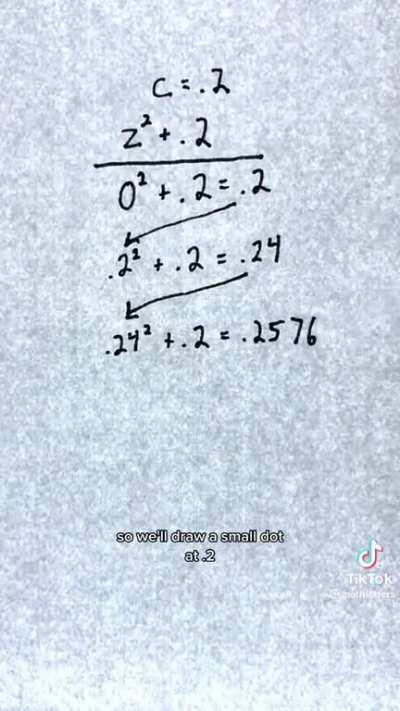 c = .2
z² + .2
0² + .2 = .2
.2² + .2 = .24
.24² + .2 = .2576
so we'll draw a small dot
at .2
TikTok